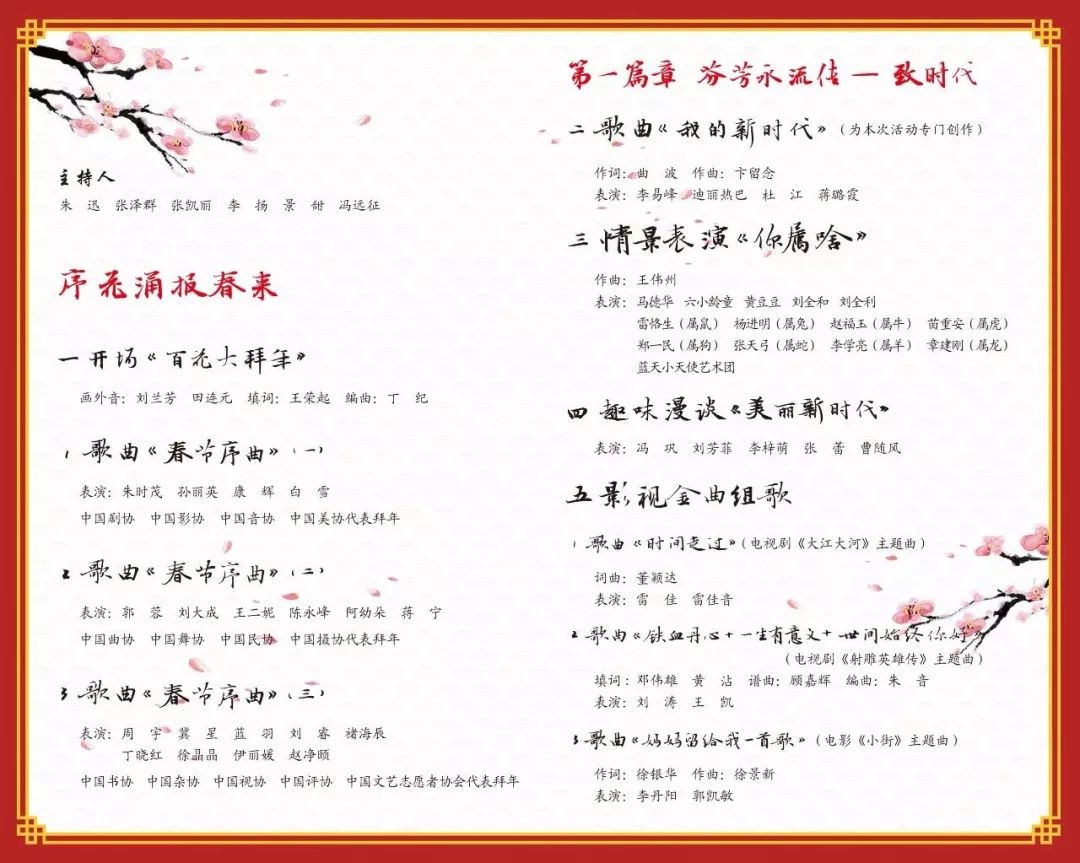 主持人
朱 迅 张泽群 张凯丽 李 扬 景 甜 冯远征
序 花涌报春来
一 开场《百花大拜年》
画外音：刘兰芳 田连元 填词：王荣起 编曲：丁 纪
1 歌曲《春节序曲》（一）
表演：朱时茂 孙丽英 康 辉 白 雪
中国剧协 中国影协 中国音协 中国美协代表拜年
2 歌曲《春节序曲》（二）
表演：郭 蓉 刘大成 王二妮 陈永峰 阿幼朵 蒋 宁
中国曲协 中国舞协 中国民协 中国摄协代表拜年
3 歌曲《春节序曲》（三）
表演：周 宇 冀 星 蓝 羽 刘 睿 褚海辰
丁晓红 徐晶晶 伊丽媛 赵净颐
中国书协 中国杂协 中国视协 中国评协 中国文艺志愿者协会代表拜年
第一篇章 芬芳永流传 — 致时代
二 歌曲《我的新时代》（为本次活动专门创作）
作词：曲 波 作曲：卞留念
表演：李易峰 迪丽热巴 杜 江 蒋璐霞
三 情景表演《你属啥》
作曲：王伟州
表演：马德华 六小龄童 黄豆豆 刘全和 刘全利
雷恪生（属鼠） 杨进明（属兔） 赵福玉（属牛） 苗重安（属虎）
郑一民（属狗） 张天弓（属蛇） 李学亮（属羊） 章建刚（属龙）
蓝天小天使艺术团
四 趣味漫谈《美丽新时代》
表演：冯 巩 刘芳菲 李梓萌 张 蕾 曹随风
五 影视金曲组歌
1 歌曲《时间走过》（电视剧《大江大河》主题曲）
词曲：董颖达
表演：雷 佳 雷佳音
2 歌曲《铁血丹心+一生有意义+世间始终你好》
（电视剧《射雕英雄传》主题曲）
填词：邓伟雄 黄 沾 谱曲：顾嘉辉 编曲：朱 音
表演：刘 涛 王 凯
3 歌曲《妈妈留给我一首歌》（电影《小街》主题曲）
作词：徐银华 作曲：徐景新
表演：李丹阳 郭凯敏